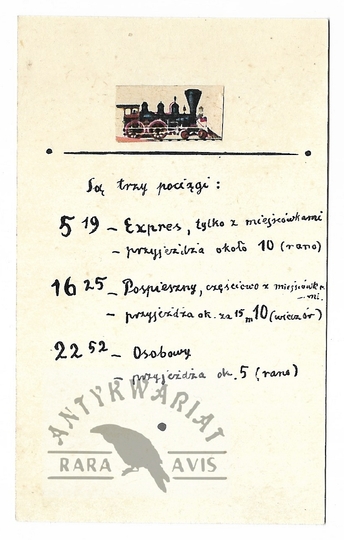 Są trzy pociągi:
5 19 – Expres, tylko z miejscówkami
– przyjeżdża około 10 (rano)
16 25 – Pospieszny, częściowo z miejscówka
mi.
– przyjeżdża ok. za 15 m 10 (wieczór)
22 52 – Osobowy
– przyjeżdża ok. 5 (rano)
ANTYKWARIAT
RARA AVIS